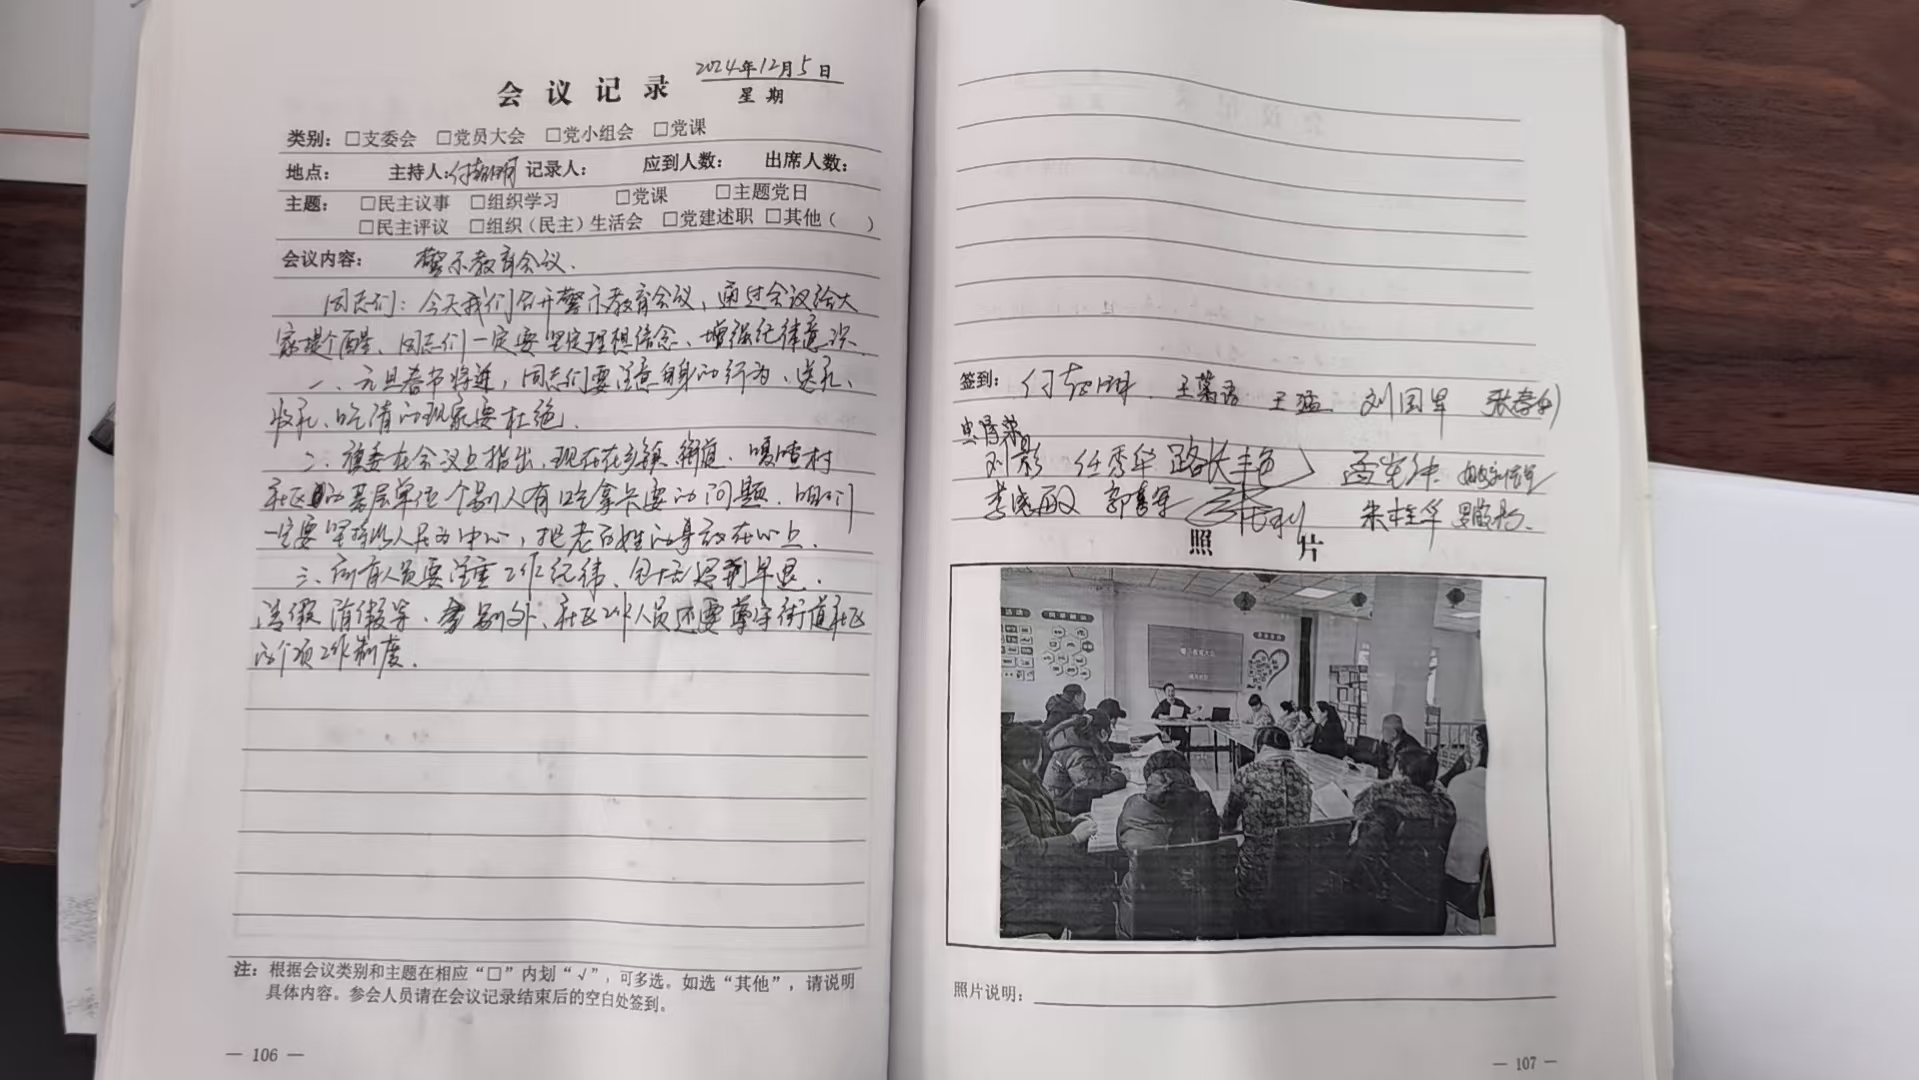 会议记录
2024年12月5日
星期
类别：□支委会 □党员大会 □党小组会 □党课
地点： 主持人：付 明 记录人： 应到人数： 出席人数：
主题： □民主议事 □组织学习 □党课 □主题党日
□民主评议 □组织（民主）生活会 □党建述职 □其他（ ）
会议内容： 警示教育会议.
同志们：今天我们召开警示教育会议，通过会议给大
家提个醒、同志们一定要坚定理想信念、增强纪律意识.
一、元旦春节将近，同志们要注意自身的行为、送礼、
收礼、吃请的现象要杜绝.
二、 委在会议上指出，现在在乡镇 街道、嘎喳村
社区的基层单位个别人有吃拿卡要的问题. 咱们
一定要坚持以人民为中心，把老百姓的事放在心上.
三、所有人员要注重工作纪律、包括迟到早退.
请假 销假等. 另外、社区工作人员还要遵守街道社区
各项工作制度.
注：根据会议类别和主题在相应“□”内划“√”，可多选。如选“其他”，请说明
具体内容。参会人员请在会议记录结束后的空白处签到。
— 106 —
签到： 付 王 王猛 刘国军 张
刘影 任秀华 路长丰 孟宪
李 敏 郭 军 张利 朱桂华
照片
照片说明：
— 107 —